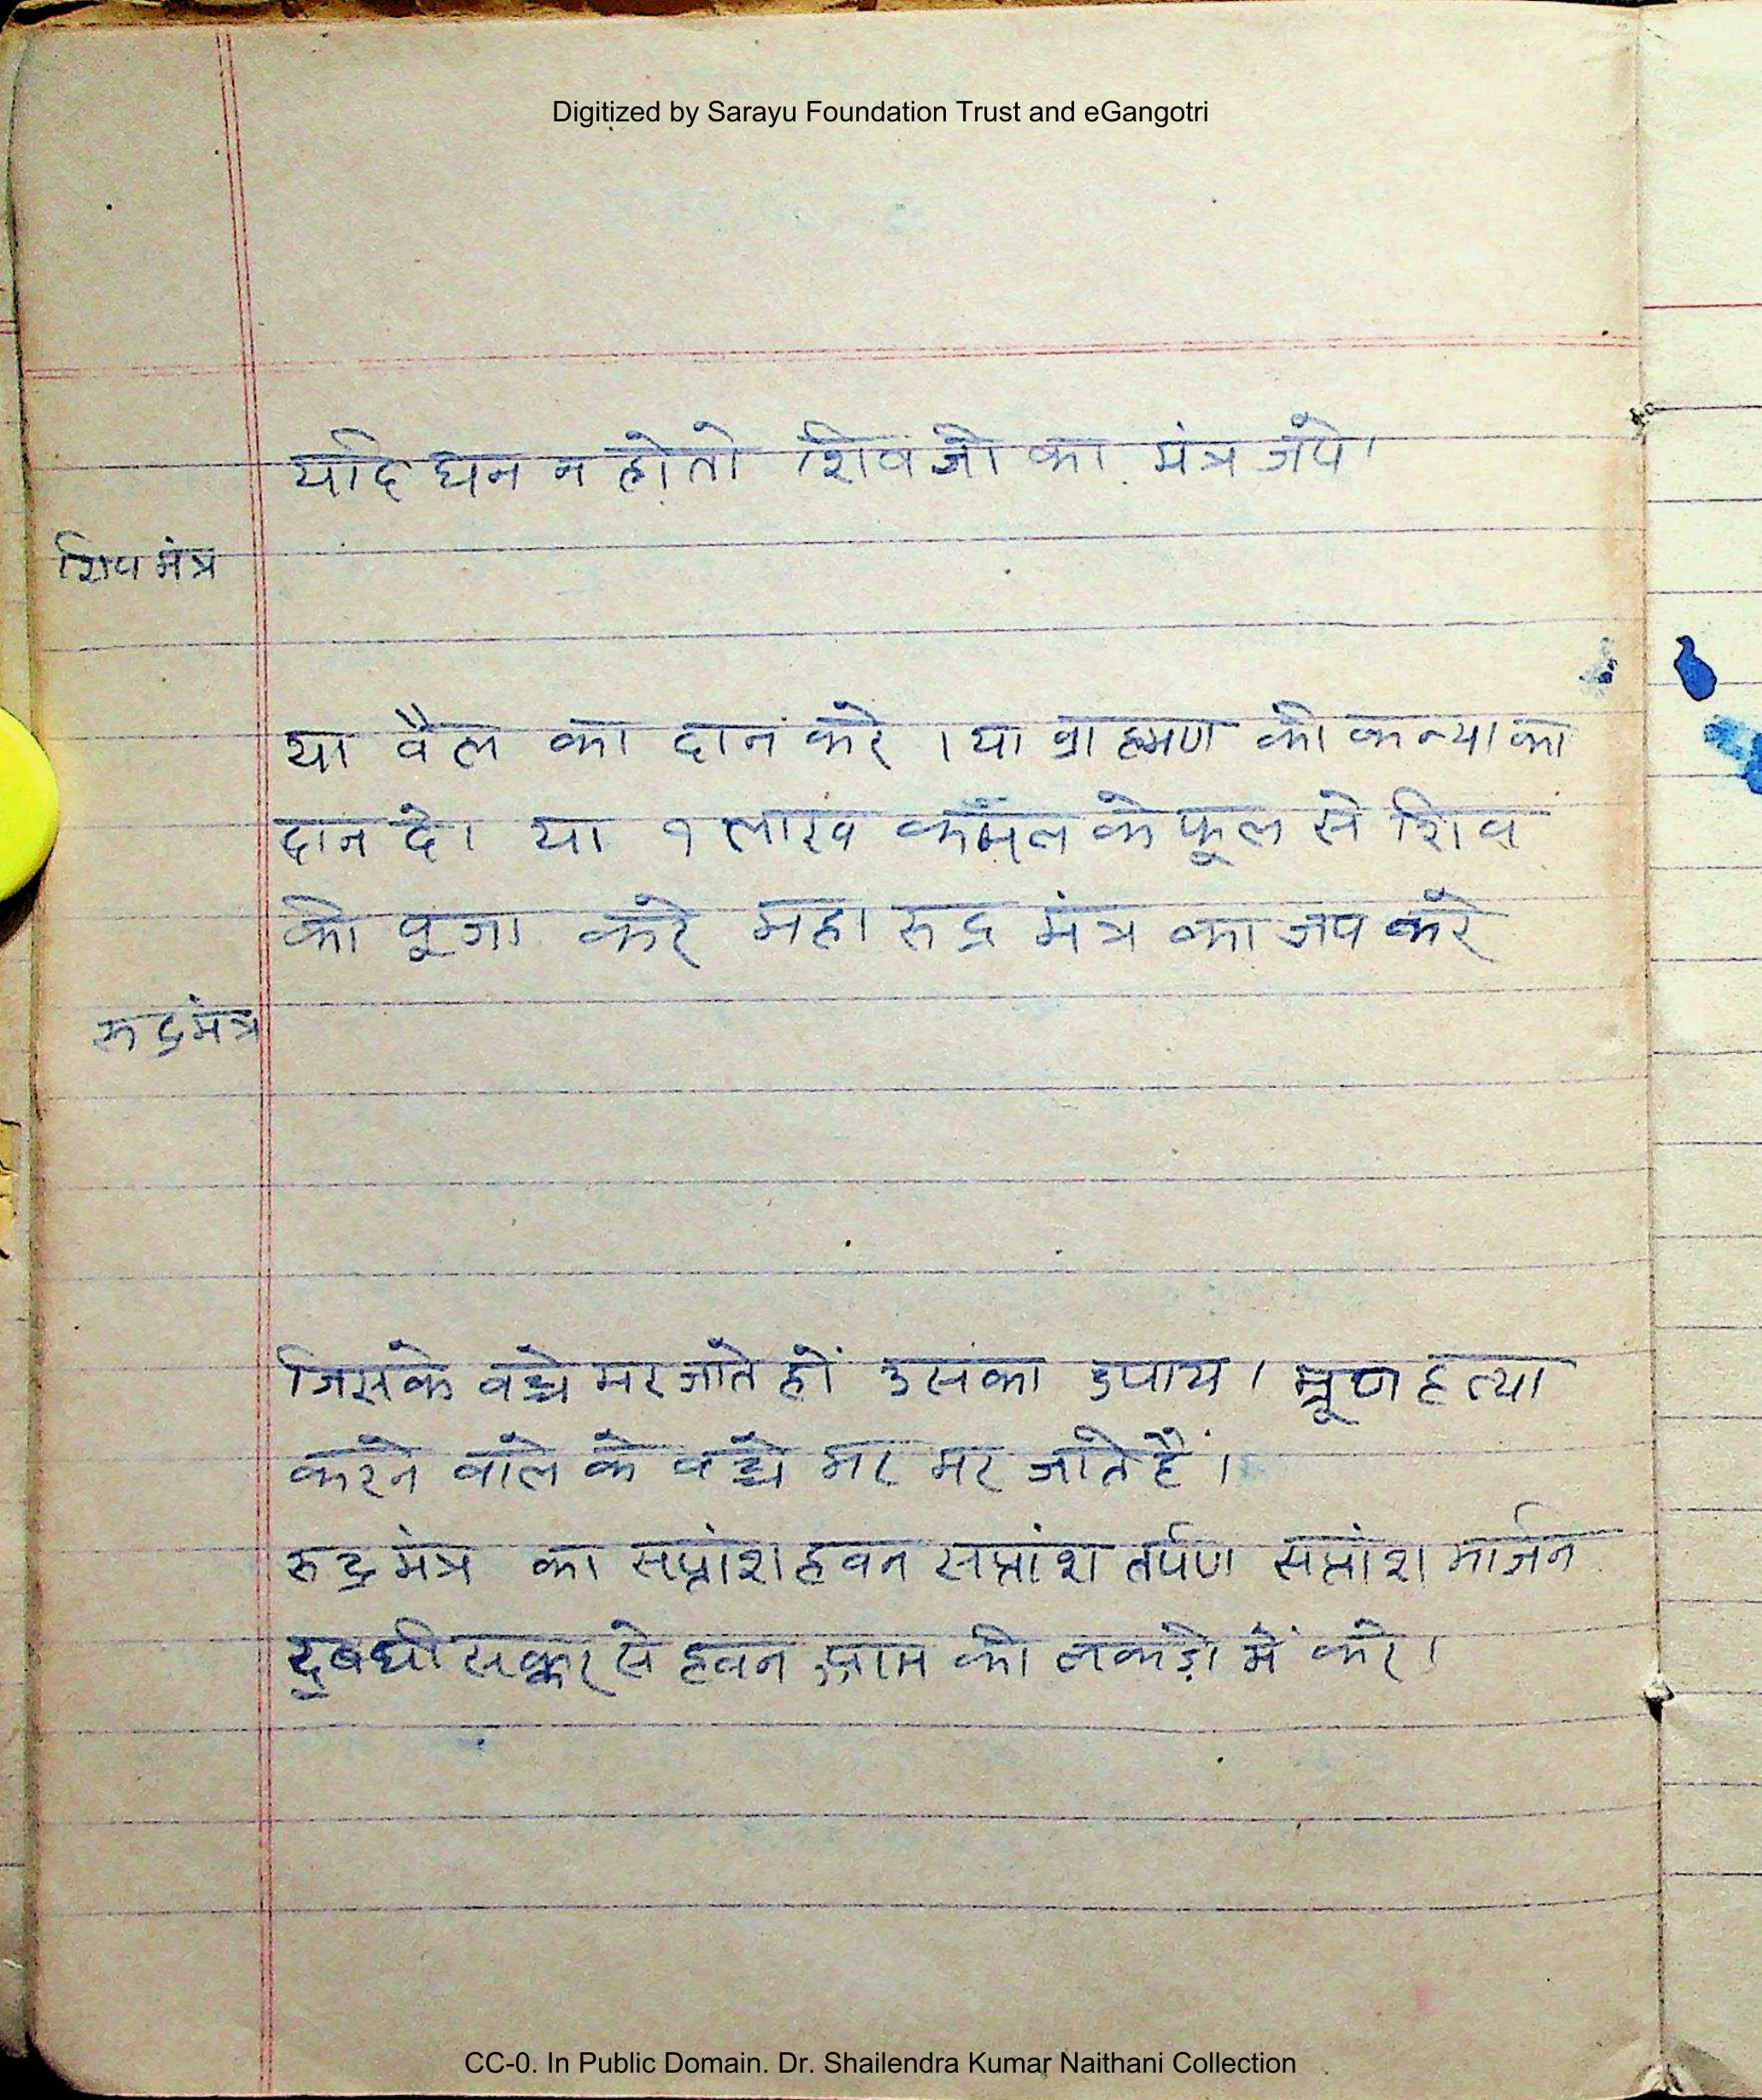 Digitized by Sarayu Foundation Trust and eGangotri
यदि धन न हो तो शिव जी का मंत्र जपे।
शिव मंत्र
या वैल का दान करे । या व्राह्मण की कन्या का
दान दे। या १ लाख कमल के फूल से शिव
की पूजा करे महा रुद्र मंत्र का जप करे
रुद्रमंत्र
जिसके वच्चे मर जाते हों उसका उपाय । भ्रूण हत्या
करने वाले के वच्चे मर मर जाते हैं।
रुद्र मंत्र का सप्तांश हवन सप्तांश तर्पण सप्तांश मार्जन
घी सक्कर से हवन आम की लकड़ी में करे।
CC-0. In Public Domain. Dr. Shailendra Kumar Naithani Collection